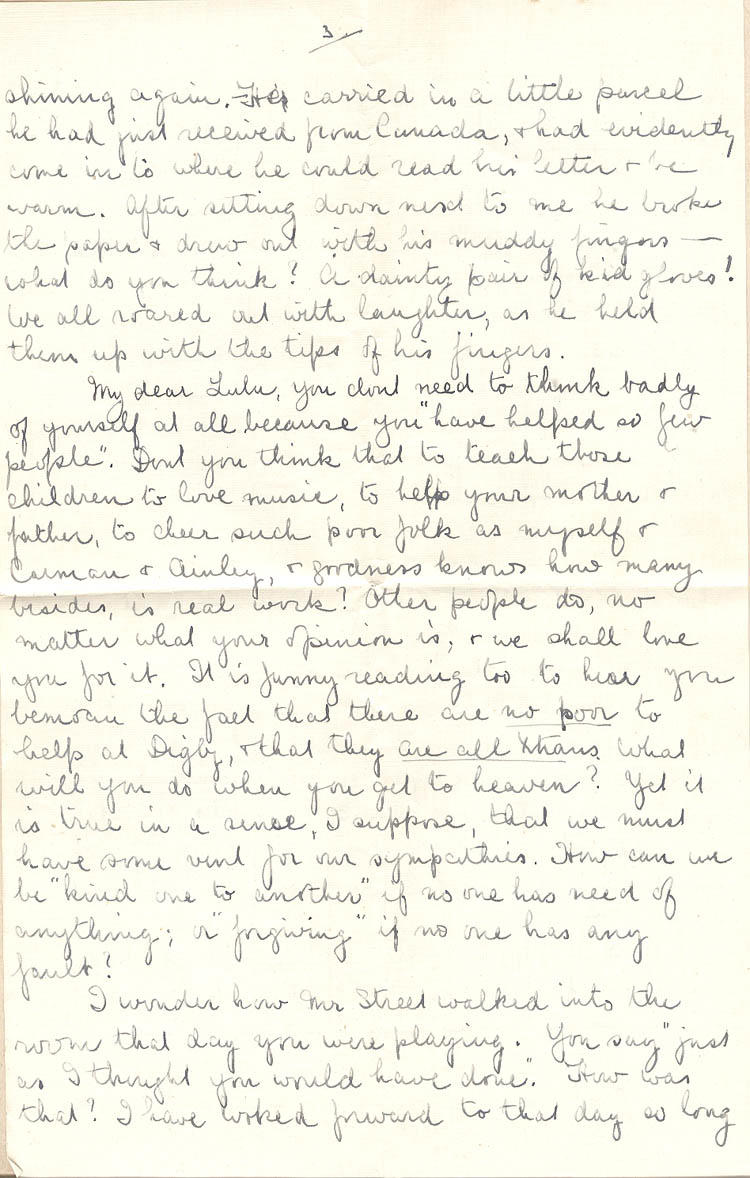 3.
shining again. He carried in a little parcel
he had just received from Canada, & had evidently
come in to where he could read his letter & be
warm. After sitting down next to me he broke
the paper & drew out with his muddy fingers —
what do you think? A dainty pair of kid gloves!
We all roared out with laughter, as he held
them up with the tips of his fingers.
My dear Lulu, you dont need to think badly
of yourself at all because you "have helped so few
people". Dont you think that to teach those
children to love music, to help your mother &
father, to cheer such poor folk as myself &
Carman & Ainley, & goodness knows how many
besides, is real work? Other people do, no
matter what your opinion is, & we shall love
you for it. It is funny reading too to hear you
bemoan the fact that there are no poor to
help at Digby, & that they are all Xtians. What
will you do when you get to heaven? Yet it
is true in a sense, I suppose, that we must
have some vent for our sympathies. How can we
be "kind one to another" if no one has need of
anything; or "forgiving" if no one has any
fault?
I wonder how Mr Street walked into the
room that day you were playing. You say "just
as I thought you would have done". How was
that? I have looked forward to that day so long